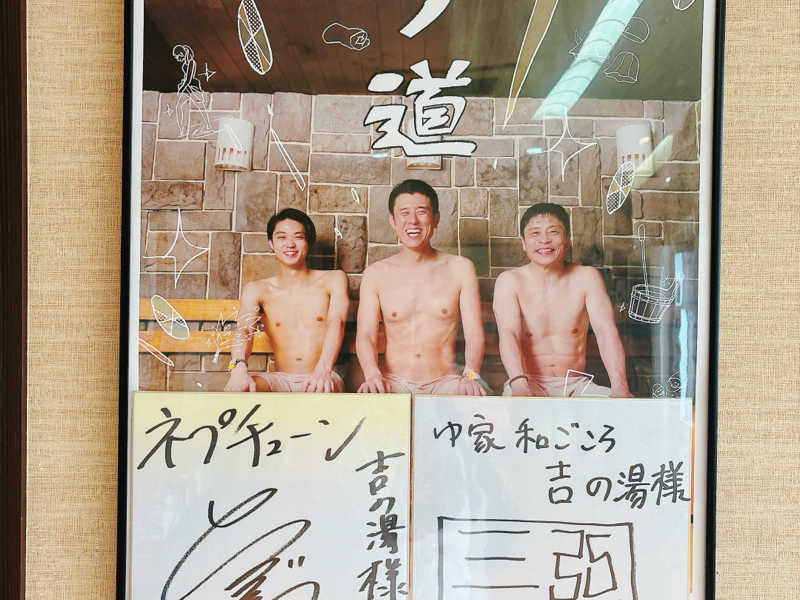 道
ネプチューン
吉の湯様
ゆ家 和ごころ
吉の湯様